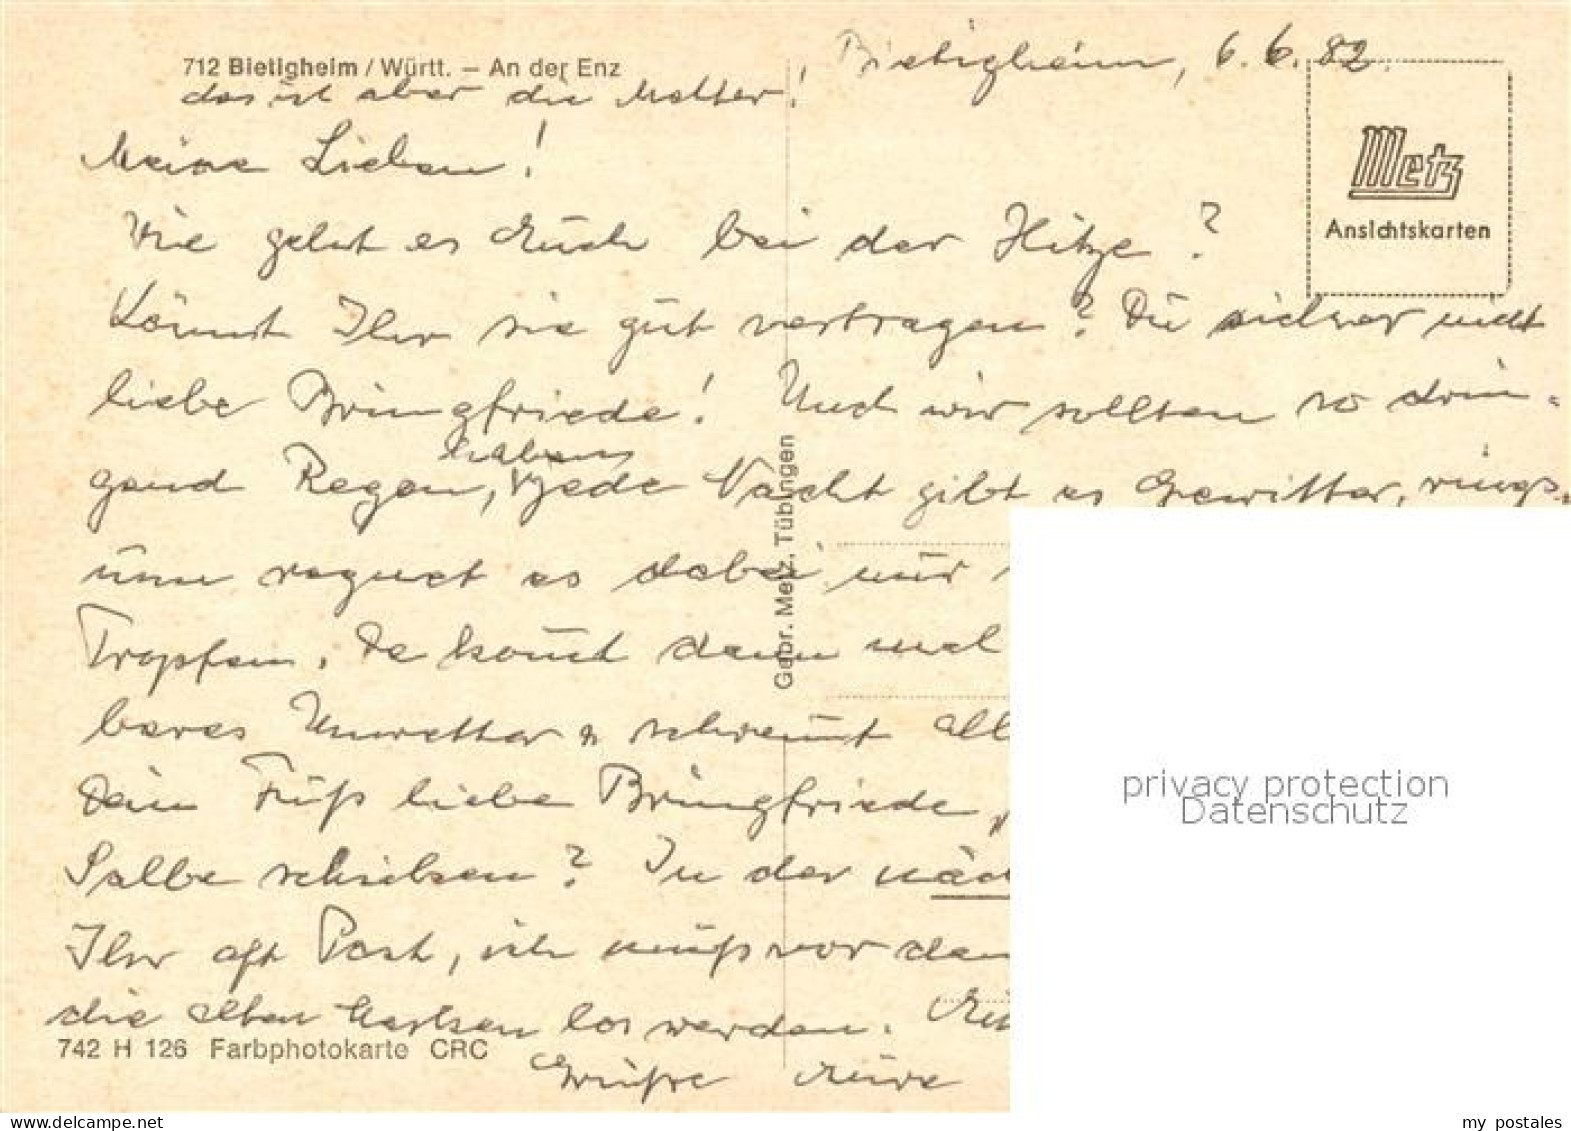 Bietigheim, 6.6.82.
712 Bietigheim / Württ. – An der Enz
das ist aber die Metter!
Metz
Ansichtskarten
Meine Lieben!
Wie geht es Euch bei der Hitze?
Könnt Ihr sie gut vertragen? Du sicher nicht
liebe Bringfriede! Und wir sollten so drin-
haben
gend Regen, jede Nacht gibt es Gewitter, rings-
um regnet es dabei nur
Tropfen. Da kommt dann mal
bares Unwetter u schwemmt all
Dein Fuß liebe Bringfriede,
Salbe schicken? In der näch
Ihr oft Post, ich muß vor dem
die alten Karten los werden.
Grüße Eure
Gebr. Metz, Tübingen
742 H 126 Farbphotokarte CRC
privacy protection
Datenschutz
www.delcampe.net
my_postales